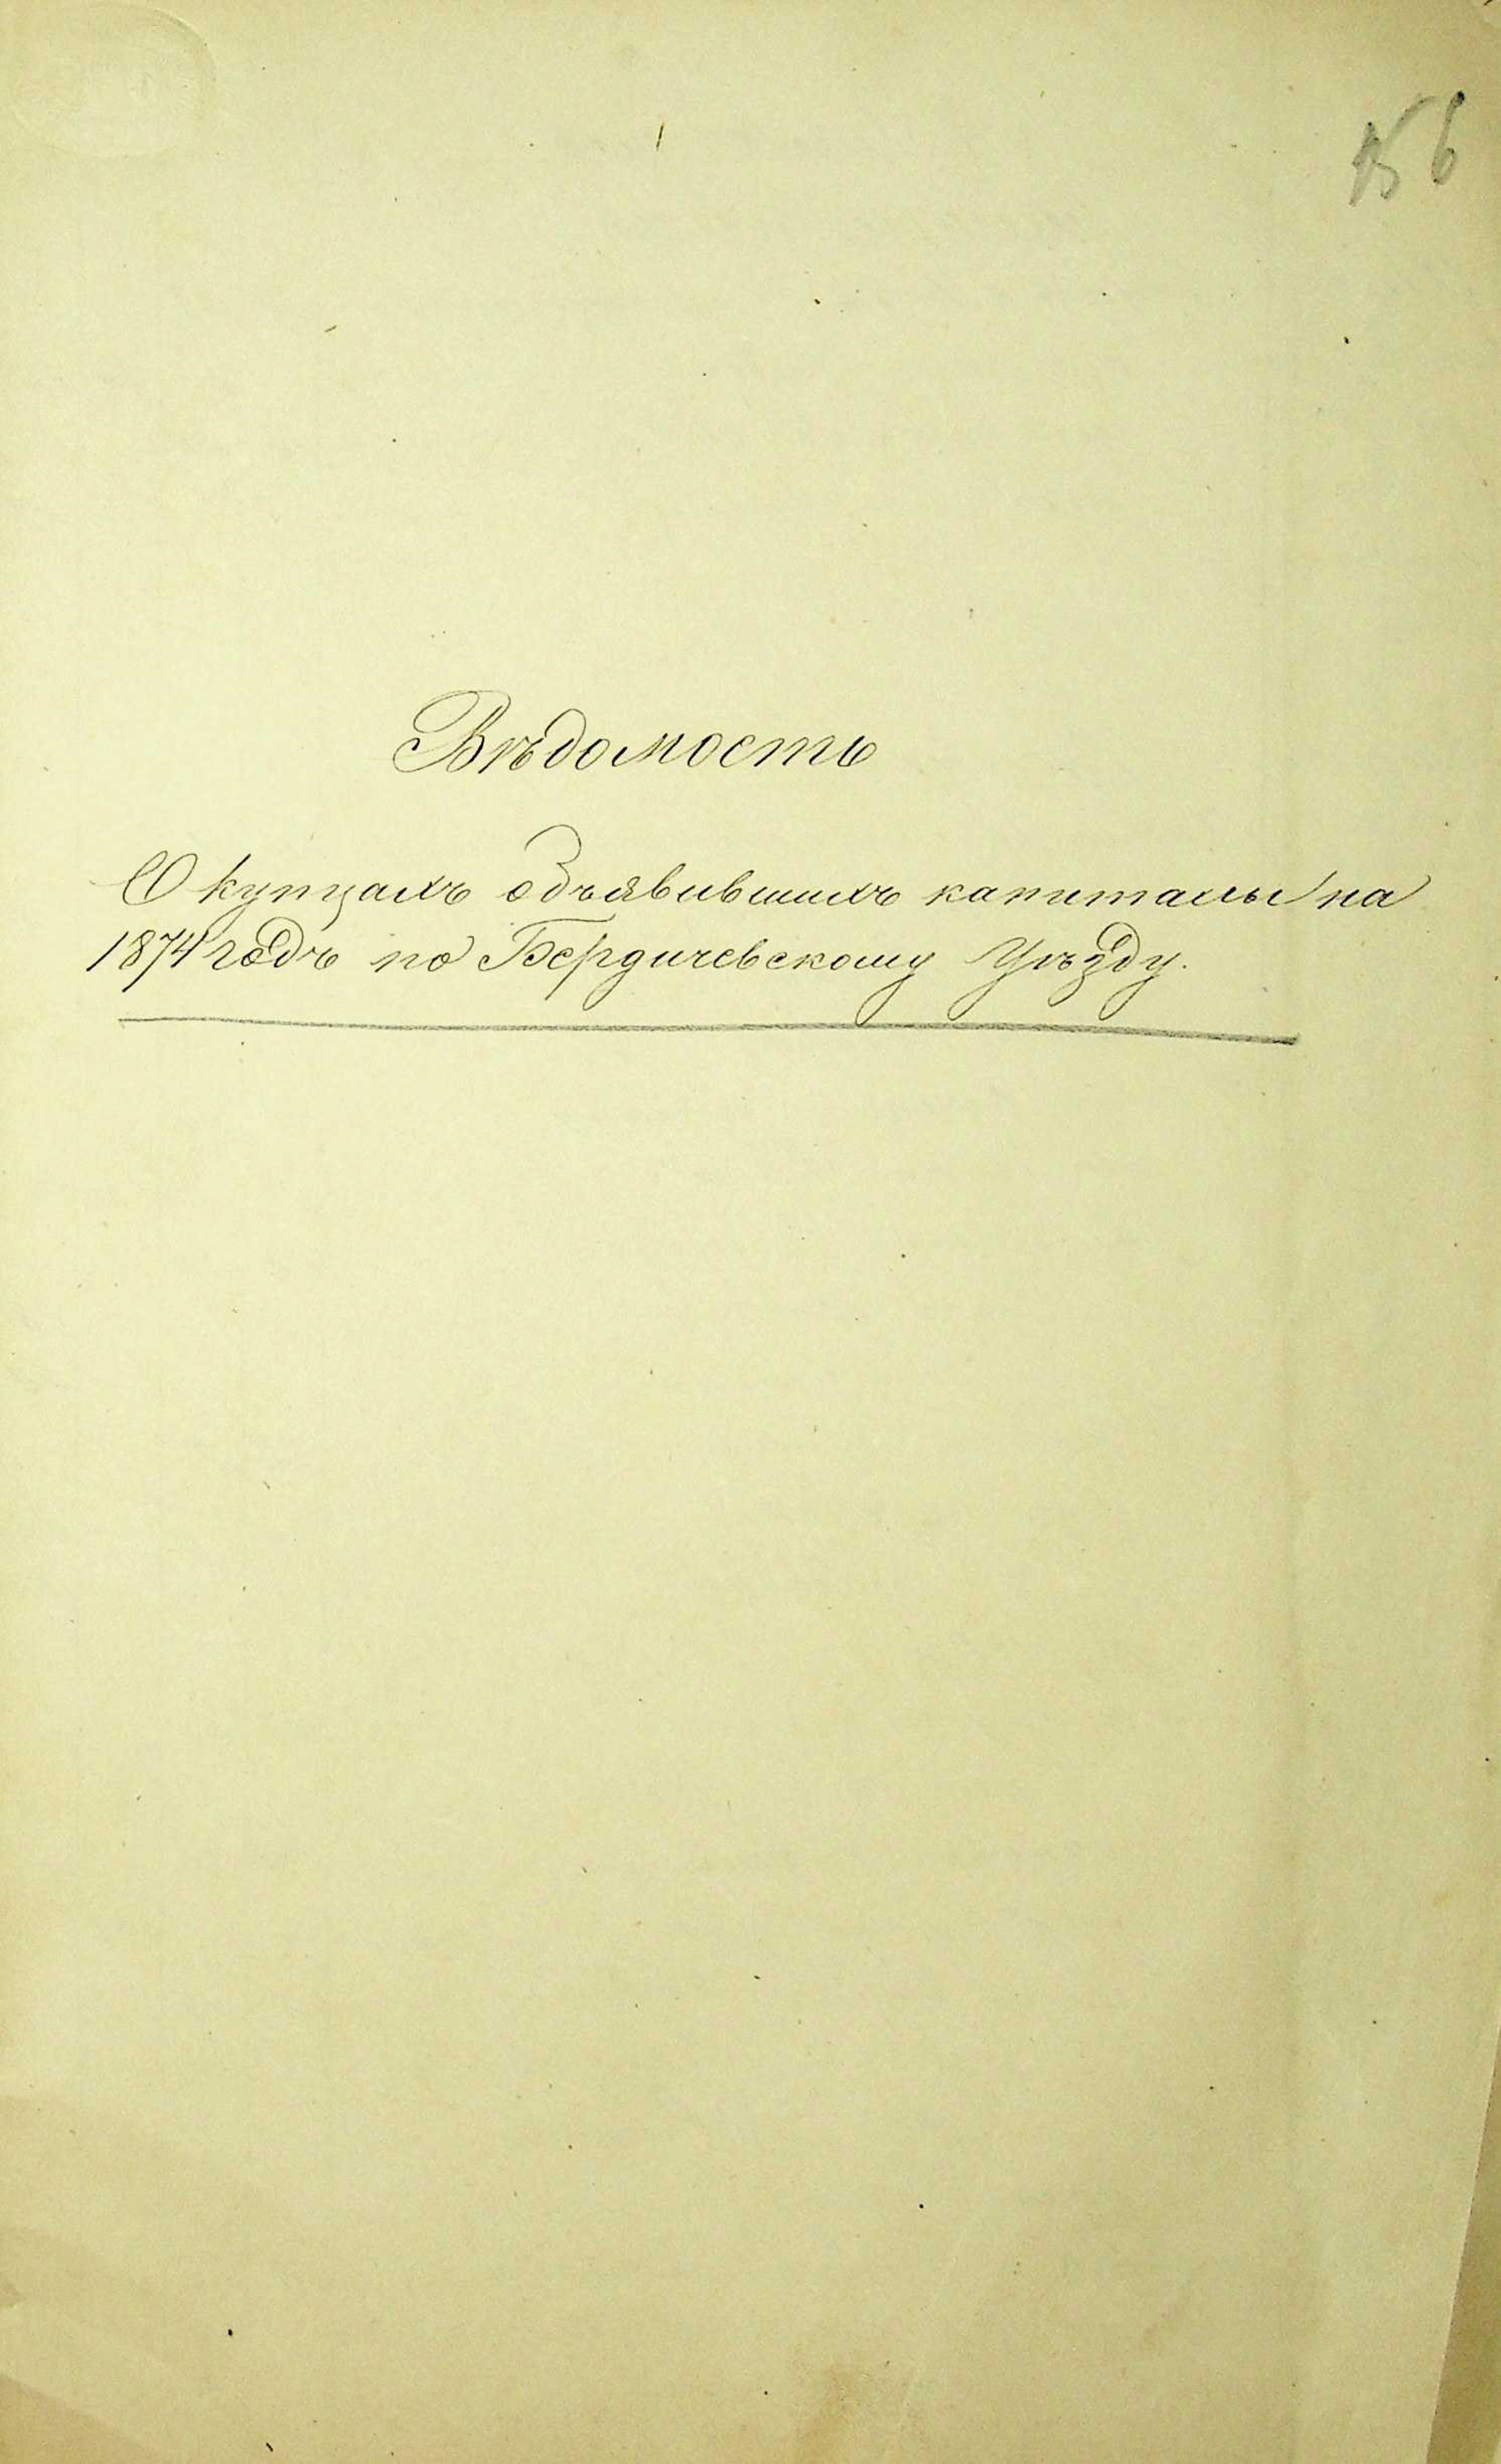 156
Вѣдомость
О купцахъ объявившихъ капиталы на
1874 годъ по Бердичевскому Уѣзду.